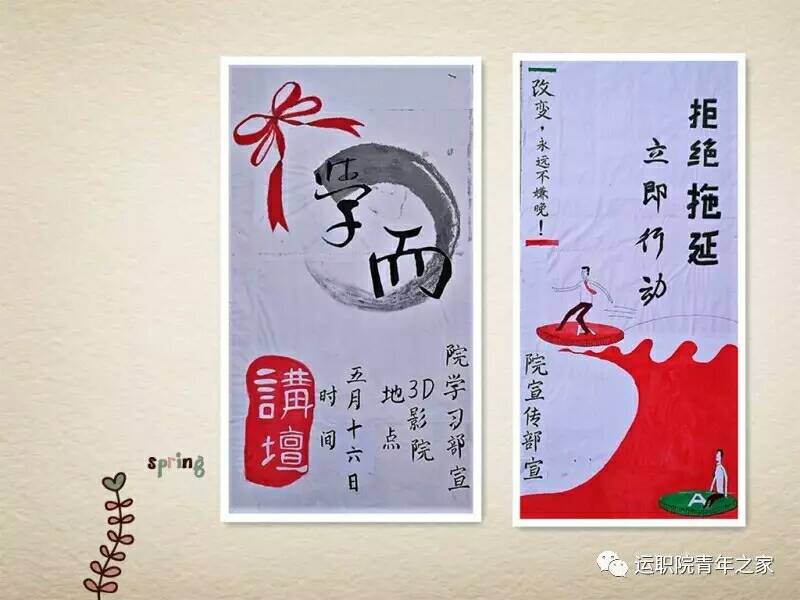 学而
講壇
时间
五月十六日
地点
3D影院
院学习部宣
拒绝拖延
立即行动
改变，永远不嫌晚！
院宣传部宣
A
spring
运职院青年之家